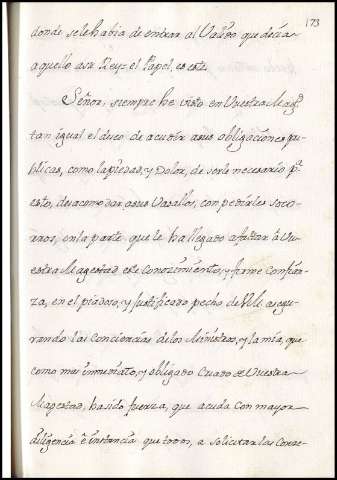 173
donde sele habia de enviar al Valido que decia
aquello asu Rey: el Papel, es este.
Señor, siempre he visto en Vuestra Magd
tan igual el deseo de acudir asus obligaciones pu-
blicas, como la piedad, y Dolor, de serle necesario pa
esto, desacomodar, asus Vasallos, con pedirles soco-
rros, en la parte que le ha llegado a faltar à Vu-
estra Magestad este conocimiento, y firme confian-
za, en el piadoso, y Justificado pecho de VM. asegu-
rando las conciencias delos Ministros, y la mia, que
como mas inmediato, y obligado Criado de Vuestra
Magestad, ha sido fuerza, que acuda con mayor
diligencia è instancia que todos, a solicitar las